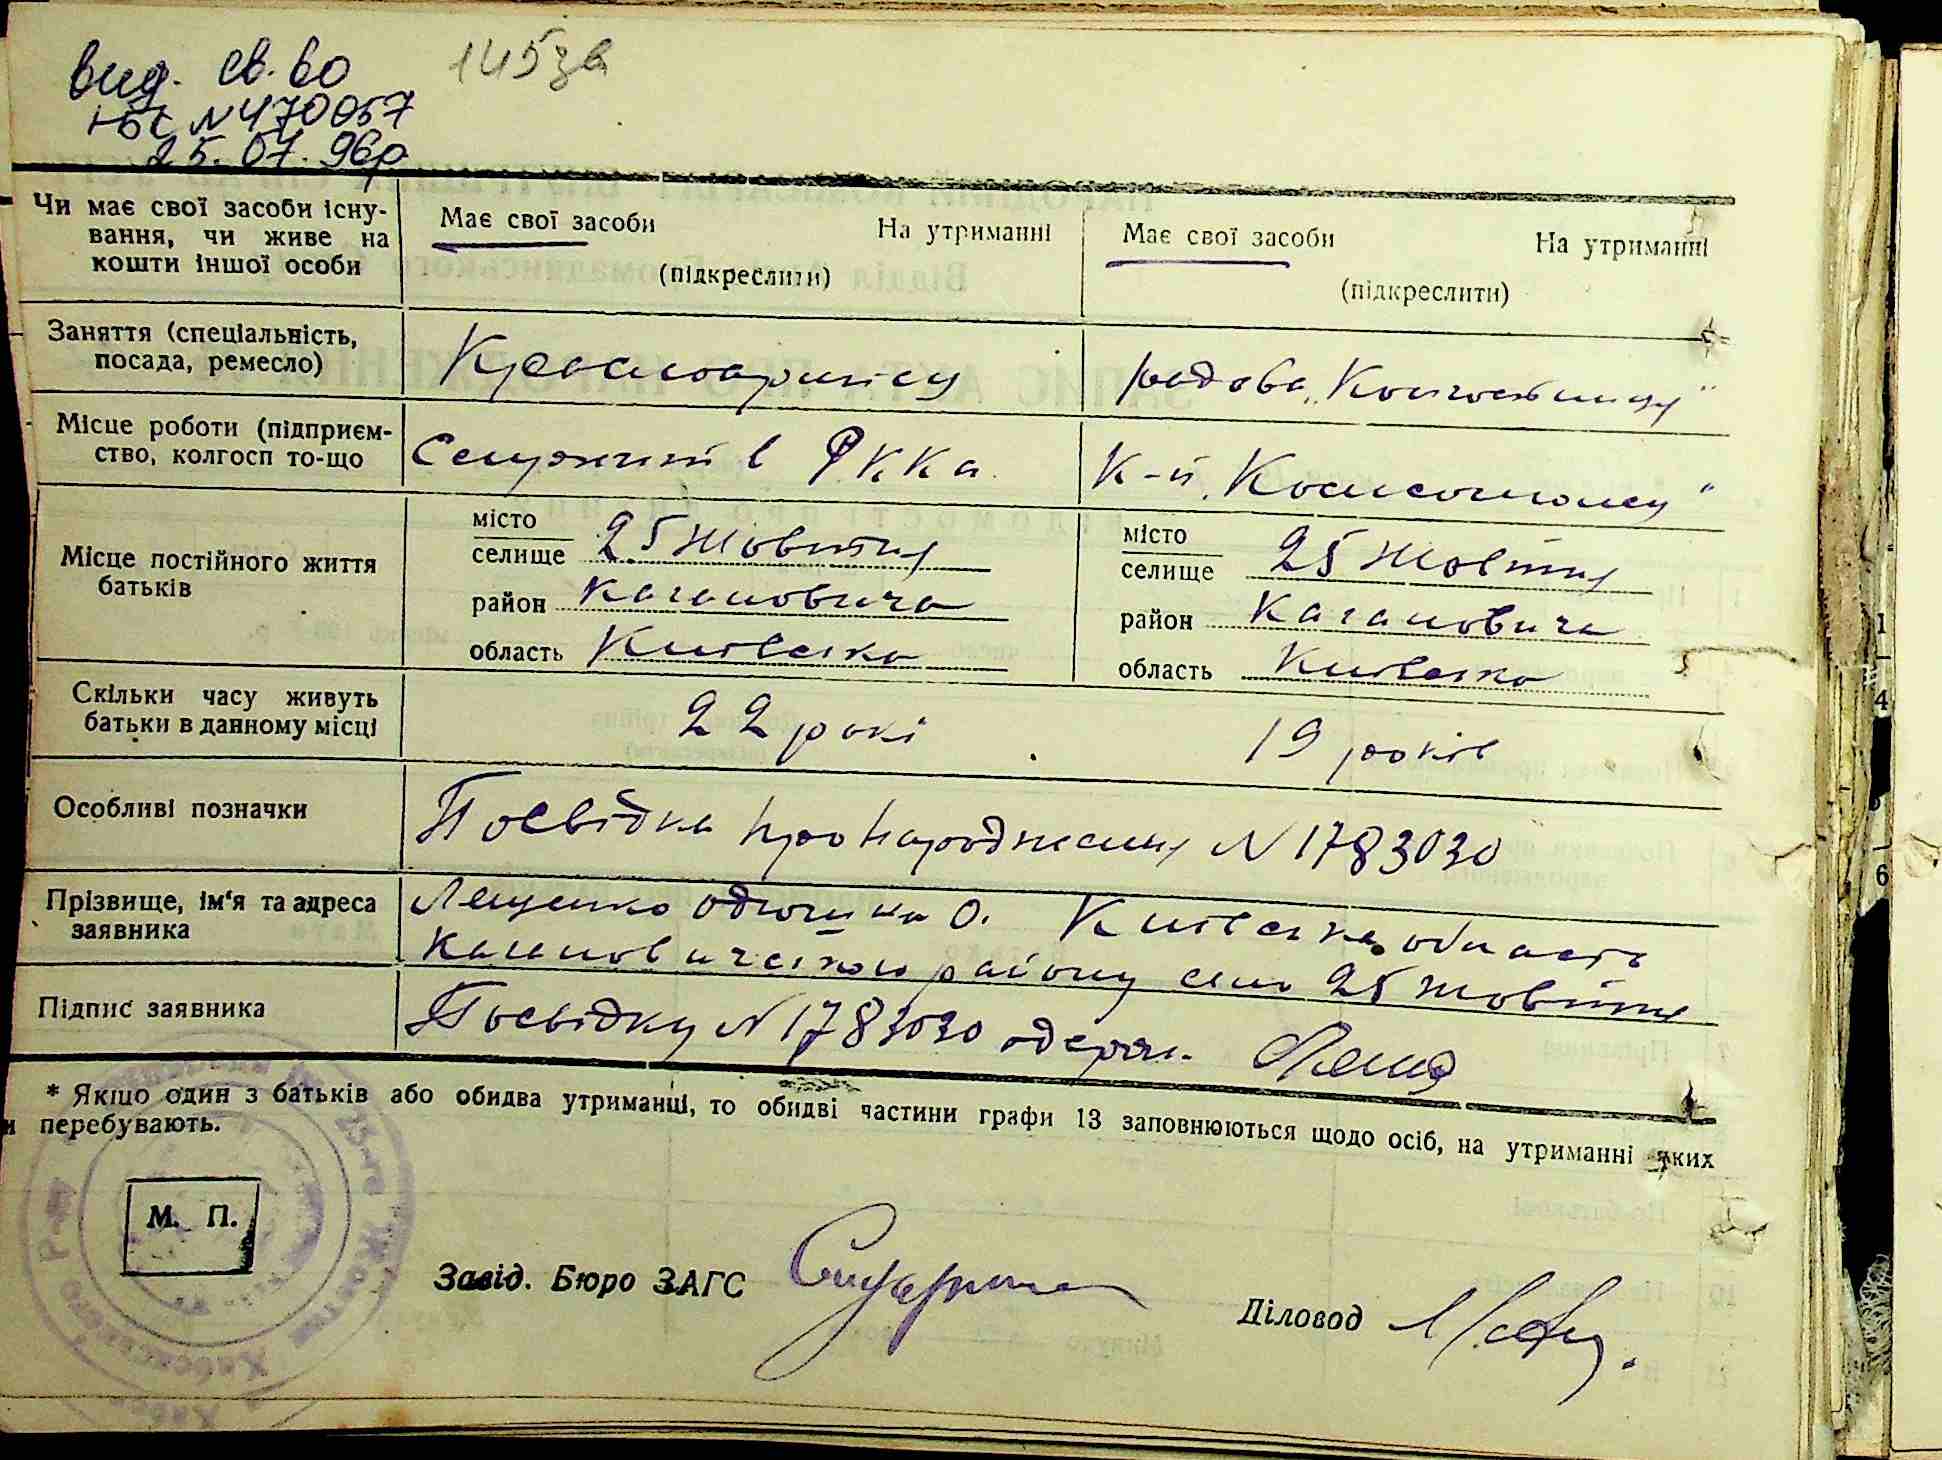 вид. св. во 145зв
N 470057
25. 07. 96р
Чи має свої засоби існу-
вання, чи живе на
кошти іншої особи
Має свої засоби На утриманні
(підкреслити)
Має свої засоби На утриманні
(підкреслити)
Заняття (спеціальність,
посада, ремесло)
рядова
Місце роботи (підприєм-
ство, колгосп то-що
Служить в РККА
К-п „Комсомолец"
Місце постійного життя
батьків
місто
селище 25 Жовтня
район Кагановича
область Київська
місто
селище 25 Жовтня
район Кагановича
область Київська
Скільки часу живуть
батьки в данному місці
22 рокі
19 років
Особливі позначки
Посвідка про народження N 1783030
Прізвище, ім'я та адреса
заявника
Лещенко О. Київська область
Кагановичського району село 25 Жовтня
Підпис заявника
Посвідку N 1783030 одержал. Леще
* Якщо один з батьків або обидва утриманці, то обидві частини графи 13 заповнюються щодо осіб, на утриманні яких
и перебувають.
М. П.
Завід. Бюро ЗАГС
Діловод